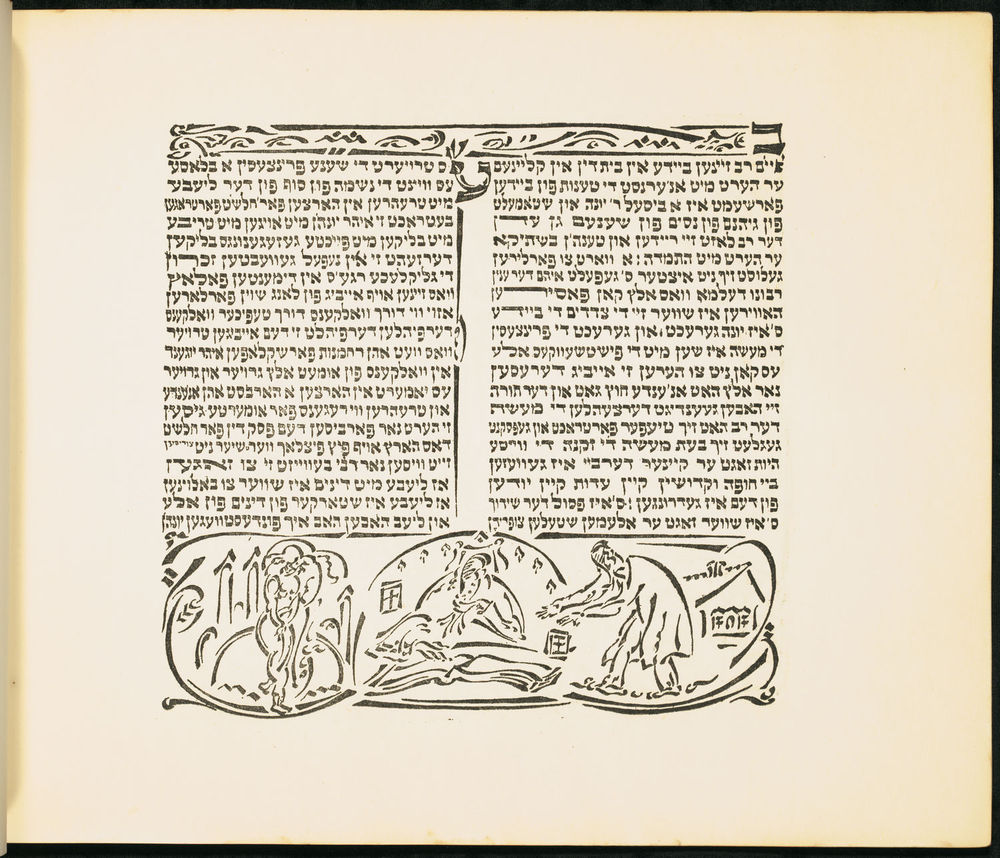 ביים רב זיינען ביידע אין בית דין אין קליינעם
ער הערט מיט אנ׳ערנסט די טענות פון ביידען
פארשעמט איז א ביסעל ר׳ יונה און שטאמעלט
פון גיהנם פון נסים פון שענעם גן עדן
דער רב לאזט זיי ריידען און טענה׳ן בשתיקא
ער הערט מיט התמדה: א ווארט צו פארלירען
געלוסט זיך ניט איצטער ס׳געפעלט איהם דער ענין
רבונו דעלמא וואס אלץ קאן פאסירען
האווירען איז שווער זיי די צדדים די ביידע
ס׳איז יונה גערעכט, און גערעכט די פרינצעסין
די מעשה איז שען מיט די פישטשעווקעס אלע
עס קאן ניט צו הערען זי אייביג דערעסען
נאר אלץ האט אנ׳ענדע חוץ גאט און דער תורה
זיי האבען געענדיגט דערצעהלען די מעשה
דער רב האט זיך טיעפער פארטראכט און געפסקנט
געגלעט זיך בעת מעשה די זקנה די ווייסע
היות זאגט ער קיינער דערביי איז געוועזען
ביי חופה וקדושין קיין עדות קיין יודען
פון דעם איז געדרונגען: ס׳איז פסול דער שידוך
ס׳איז שווער זאגט ער אלעמען שטעלען צופרידן
עס טרויערט די שענע פרינצעסין א בלאסע
עס וויינט די נשמה פון סוף פון דער ליעבע
מיט טרעהרען אין הארצען פאר׳חלשט פארטראגען
בעטראכט זי איהר יונה׳ן מיט אויגען מיט טריבע
מיט בליקען מיט פייכטע געזעגענונגס בליקען
דערזעהט זי אין נעפעל געוועבטען זכרון
די גליקלעכע רגע׳ס אין דימענטען פאלאץ
וואס זיינען אויף אייביג פון לאנג שוין פארלארען
אזוי ווי דורך וואלקענס דורך טעפיכער וואלקענס
דערפיהלען דערפיהלט זי דעם אייבעגען טרויער
וואס וועט אהן רחמנות פארשקלאפען איהר יוגענד
אין וואלקענס פון אומעט אלץ גרויער און גרויער
עס יאמערט אין הארצען א הארבסט אהן אנ׳ענדע
און טרעהרען ווי רעגענס פאר אומערטע גיסען
זי הערט נאר פארביסען דעם פסק דין פאר חלשט
דאס הארץ אויף פיץ פיצלאך ווער שיער ניט צוריסען
זייט וויסען נאר רבי בעווייזט זי צו זאגען
אז ליעבע מיט דינים איז שווער צו באלוינען
אז ליעבע איז שטארקער פון דינים פון אלע
און ליעב האבען האב איך פונדעסטוועגען יונה׳ן